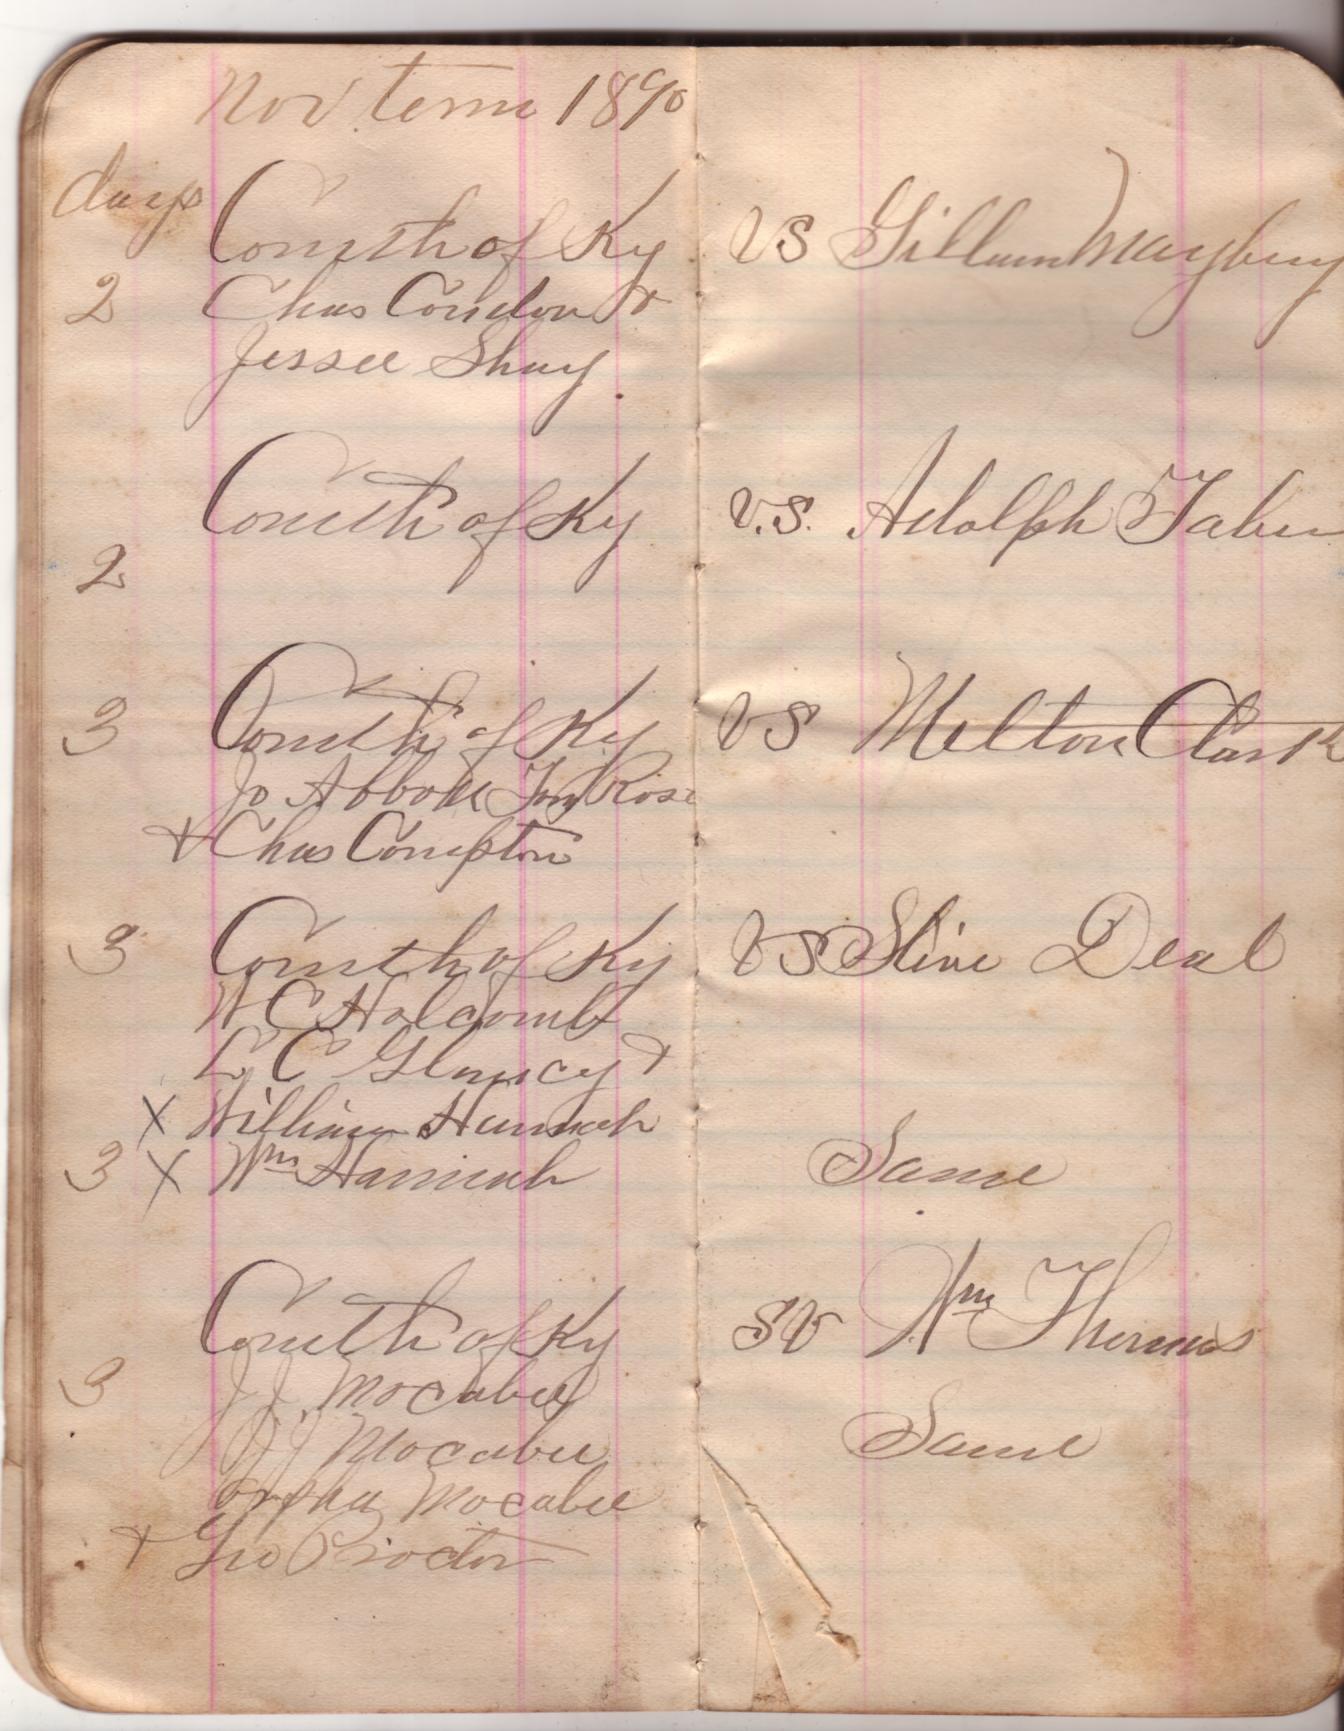 Nov term 1890
days
Comth of Ky VS Gillum Maybury
2 Chas Condon +
Jessee Shuy
Comth of Ky V.S. Adolph Taber
2
3 Comth of Ky VS Melton Clark
Jo Abbott Tom Rose
+ Chas Compton
3 Comth of Ky VS Stine Deal
W C Holcomb
L C Glancy +
X William Hannah
3 X Wm Hannah Same
Comth of Ky SV Wm Thomas
3 J. J. Mocabee
J J Mocabee Same
Orpha Mocabee
+ Geo Proctor